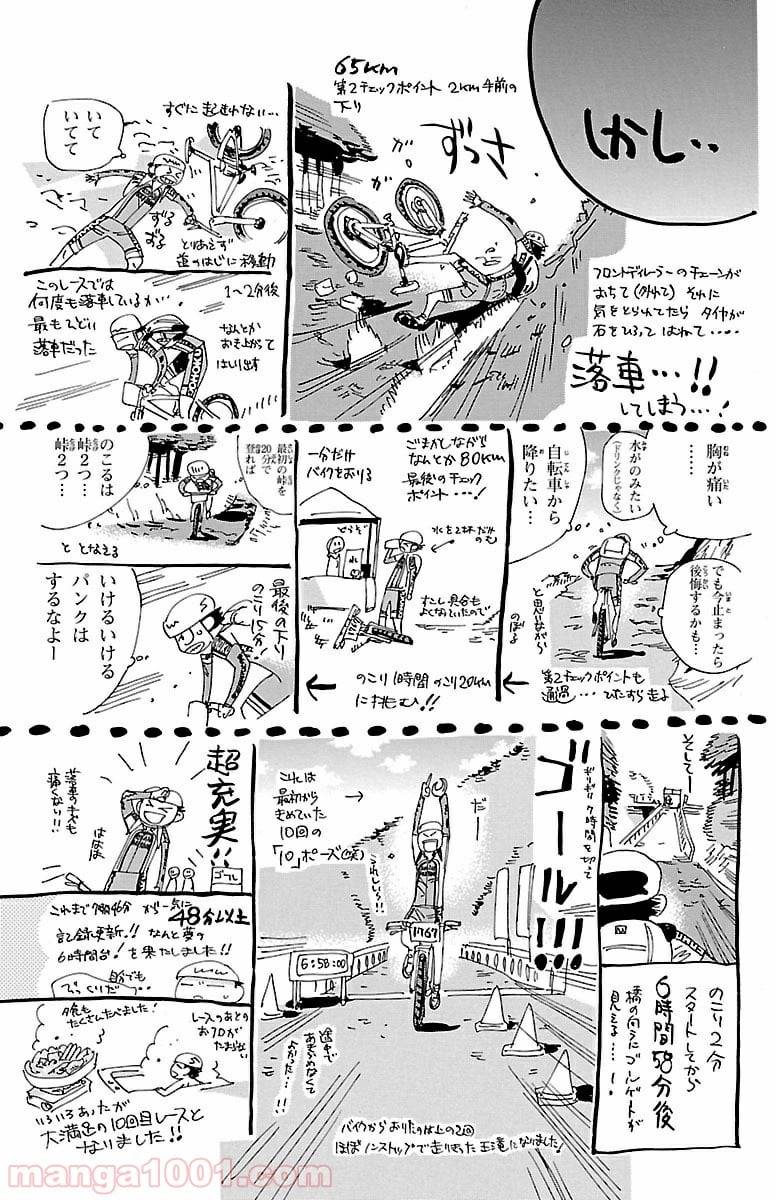 しかし‥
65km
第2チェックポイント 2km手前の
下り
ずっさ
ガ!
ガ
フロントディレーラーのチェーンが
おちて(外れて) それに
気をとられてたら タイヤが
石をひろって はねて‥‥
落車…!!
してしまう…!
すぐに起きれない…
いて
いてて
ずる
ずる
とりあえず
道のはじに移動
このレースでは
何度も落車しているが…
最もひどい
落車だった
1〜2分後
なんとか
おき上がって
はしり出す
胸が痛い
……
水がのみたい
(ドリンクじゃなく)
自転車から
降りたい…
でも今止まったら
後悔するかも…
と思いながら
のぼる
第2チェックポイントも
通過… ひたすら走る
ごまかしながら!!
なんとか80km
最後のチェック
ポイント…!
一分だけ
バイクをおりる
どうぞ
水を2杯だけ
のむ
のこり1時間 のこり20km
に挑む!!
最初の峠を
20分で
登れば
のこるは
峠2つ…
峠2つ…
と となえる
最後の下り
のこり15分!
いけるいける
パンクは
するなよー
そしてー
のこり2分
スタートしてから
6時間58分後
橋の向うにゴールゲートが
見える…!
ギリギリ7時間を切って
ゴール!!!
だー
これは
最初から
きめていた
10回の
「10」ポーズ(笑)
うれしいっ!!
1767
6:58:00
途中で
あきらめなくて
よかった…!
バイクからおりたのは上の2回
ほぼノンストップで走りきった王滝になりました!
超充実!!
ゴール
落車のキズも
痛くない!!
ははは
48分以上
記録更新!! なんと夢の
6時間台!を果たしました!!
自分でも
びっくりだ…
レースのあとの
お風呂が
たまらない
夕食も
たくさんたべました!
いろいろあったが
大満足の10回目レースと
なりました!!
manga1001.com